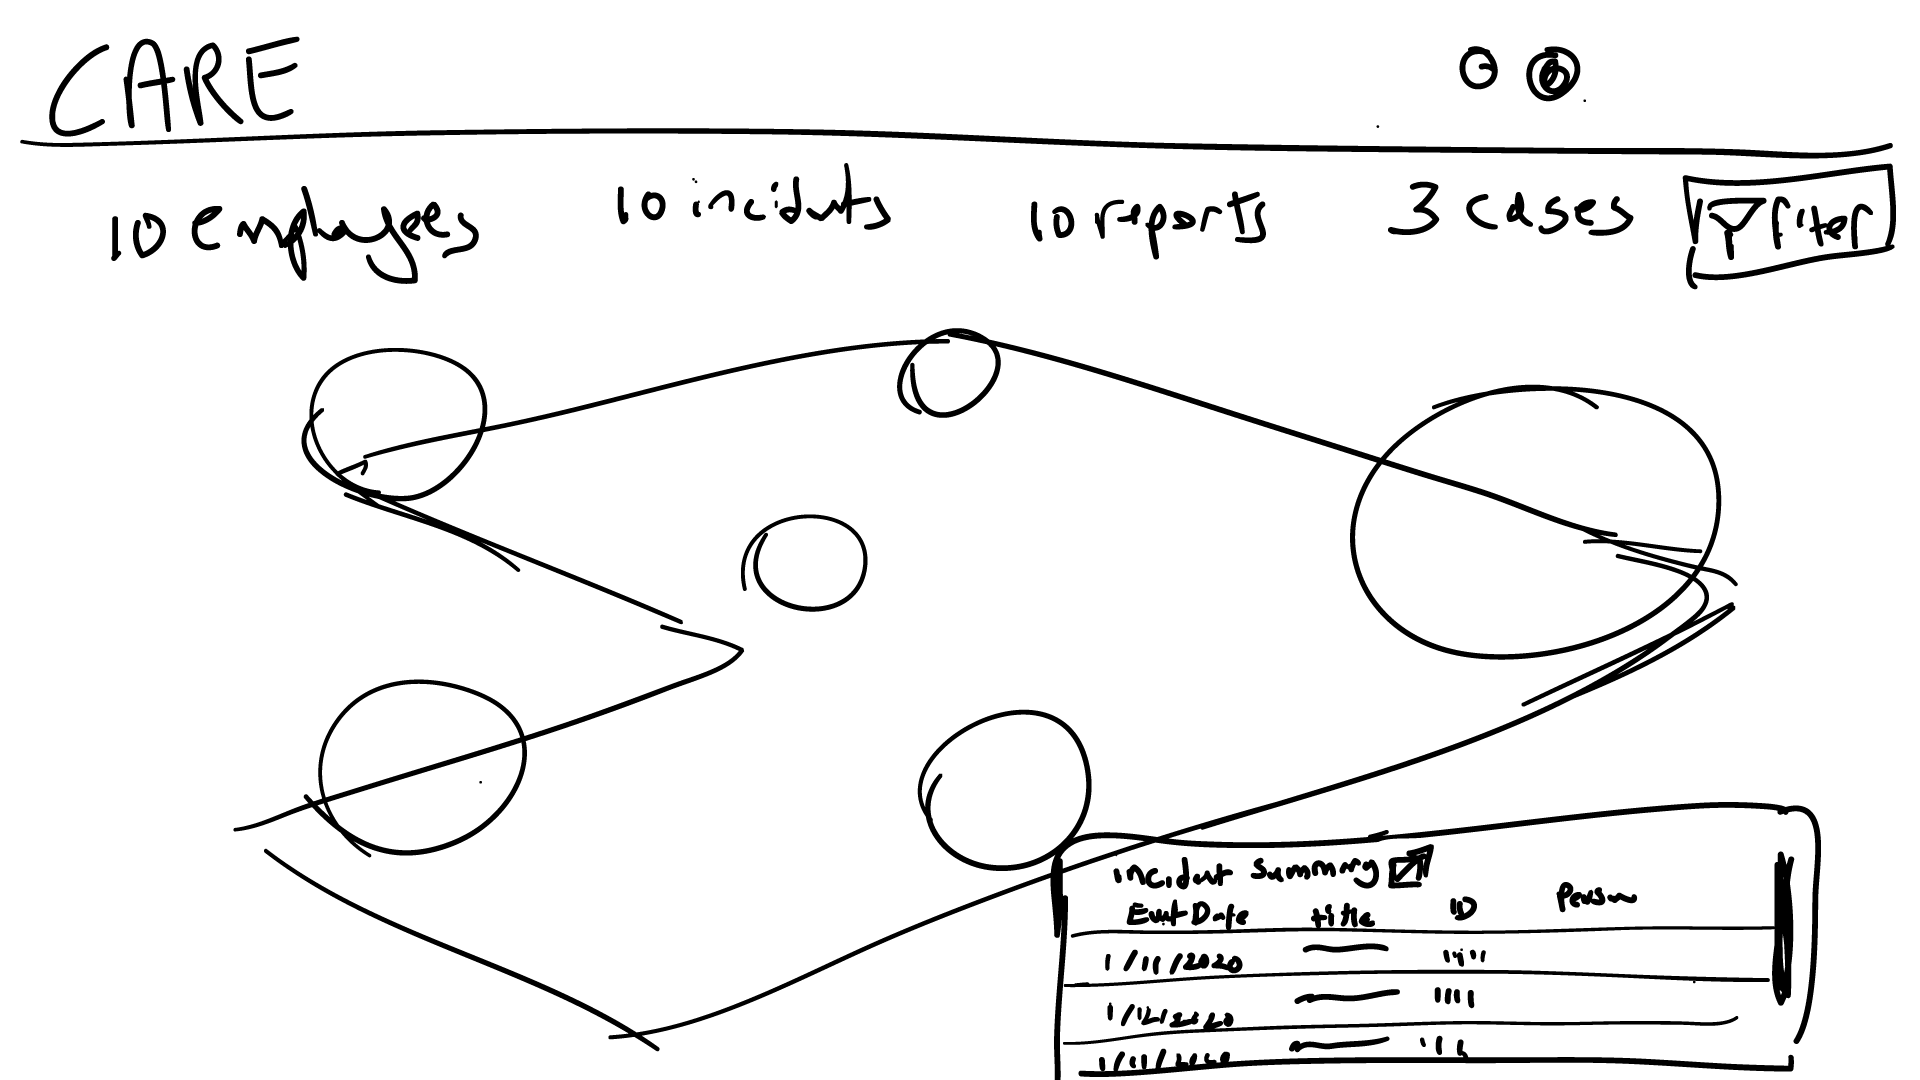 CARE
10 employees 10 incidents 10 reports 3 cases filter
incident summary
Event Date title ID Person
1/11/2020 1111
1/12/2020 1111
1/11/2020 111